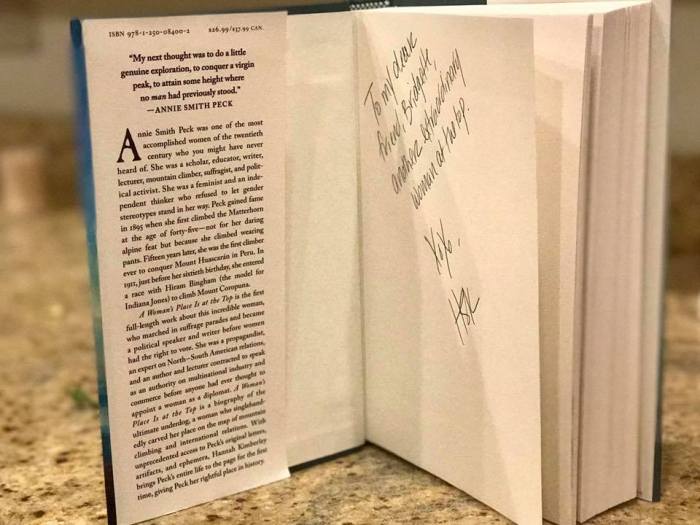 ISBN 978-1-250-08400-2 $26.99/$37.99 CAN.
"My next thought was to do a little
genuine exploration, to conquer a virgin
peak, to attain some height where
no man had previously stood."
—ANNIE SMITH PECK
Annie Smith Peck was one of the most
accomplished women of the twentieth
century who you might have never
heard of. She was a scholar, educator, writer,
lecturer, mountain climber, suffragist, and polit-
ical activist. She was a feminist and an inde-
pendent thinker who refused to let gender
stereotypes stand in her way. Peck gained fame
in 1895 when she first climbed the Matterhorn
at the age of forty-five—not for her daring
alpine feat but because she climbed wearing
pants. Fifteen years later, she was the first climber
ever to conquer Mount Huascarán in Peru. In
1911, just before her sixtieth birthday, she entered
a race with Hiram Bingham (the model for
Indiana Jones) to climb Mount Coropuna.
A Woman's Place Is at the Top is the first
full-length work about this incredible woman,
who marched in suffrage parades and became
a political speaker and writer before women
had the right to vote. She was a propagandist,
an expert on North–South American relations,
and an author and lecturer contracted to speak
as an authority on multinational industry and
commerce before anyone had ever thought to
appoint a woman as a diplomat. A Woman's
Place Is at the Top is a biography of the
ultimate underdog, a woman who singlehand-
edly carved her place on the map of mountain
climbing and international relations. With
unprecedented access to Peck's original letters,
artifacts, and ephemera, Hannah Kimberley
brings Peck's entire life to the page for the first
time, giving Peck her rightful place in history.
To my dear
friend, Bridgette,
another extraordinary
woman at the top.
XOXO,
HSK